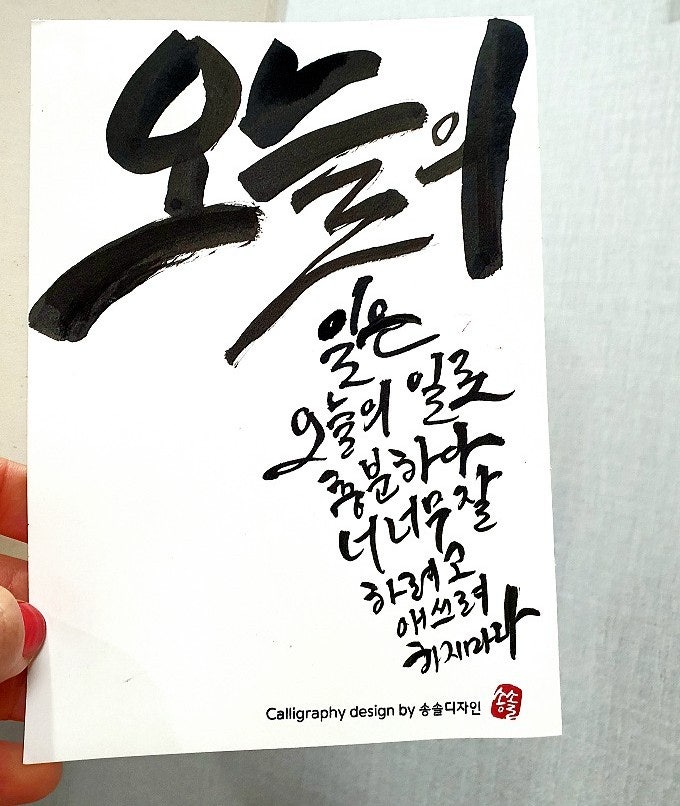 오늘의
일은
오늘의 일로
충분하다
너 너무 잘
하려고
애쓰려
하지마라
Calligraphy design by 송솔디자인
송솔